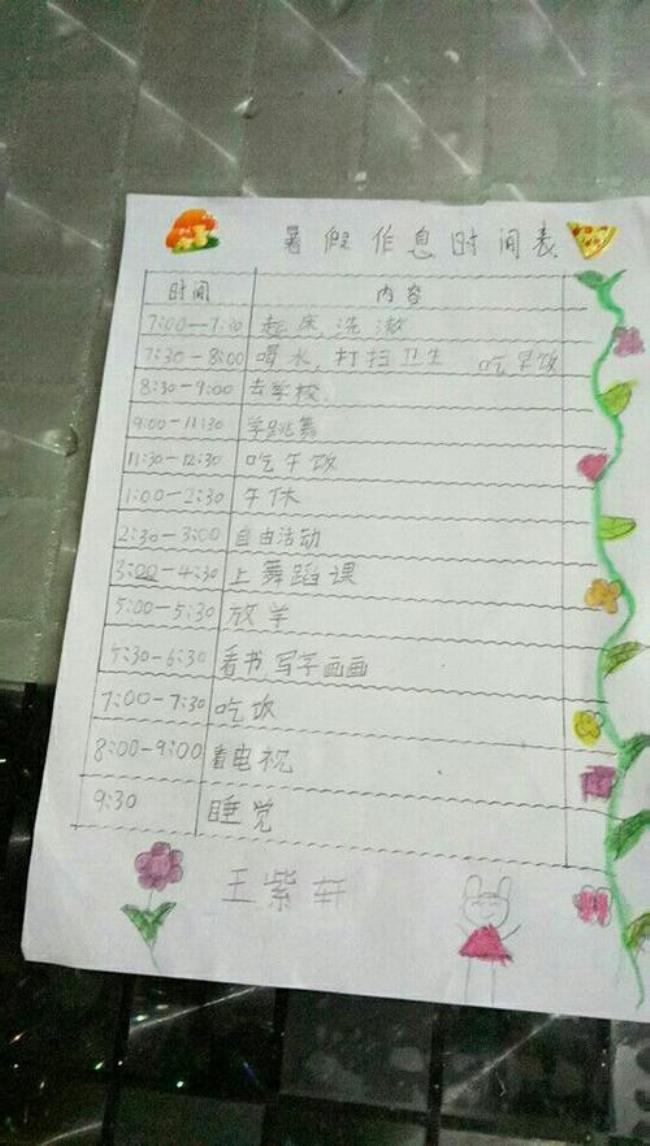 暑假作息时间表
时间 内容
7:00-7:30 起床,洗漱
7:30-8:00 喝水,打扫卫生 吃早饭
8:30-9:00 去学校.
9:00-11:30 学跳舞
11:30-12:30 吃午饭
1:00-2:30 午休
2:30-3:00 自由活动
3:00-4:30 上舞蹈课
5:00-5:30 放学
5:30-6:30 看书,写字画画
7:00-7:30 吃饭
8:00-9:00 看电视
9:30 睡觉
王紫轩